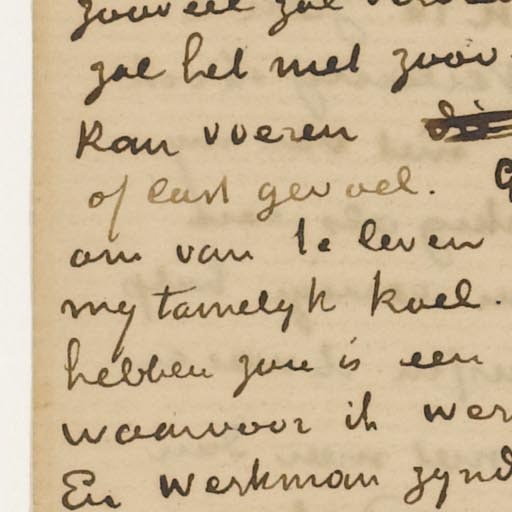 zooveel zal
zal het met zoov
kan voeren
of last gevoel. G
om van te leven
my tamelyk koel.
hebben zou is een
waarvoor ik wer
En werkman zynd